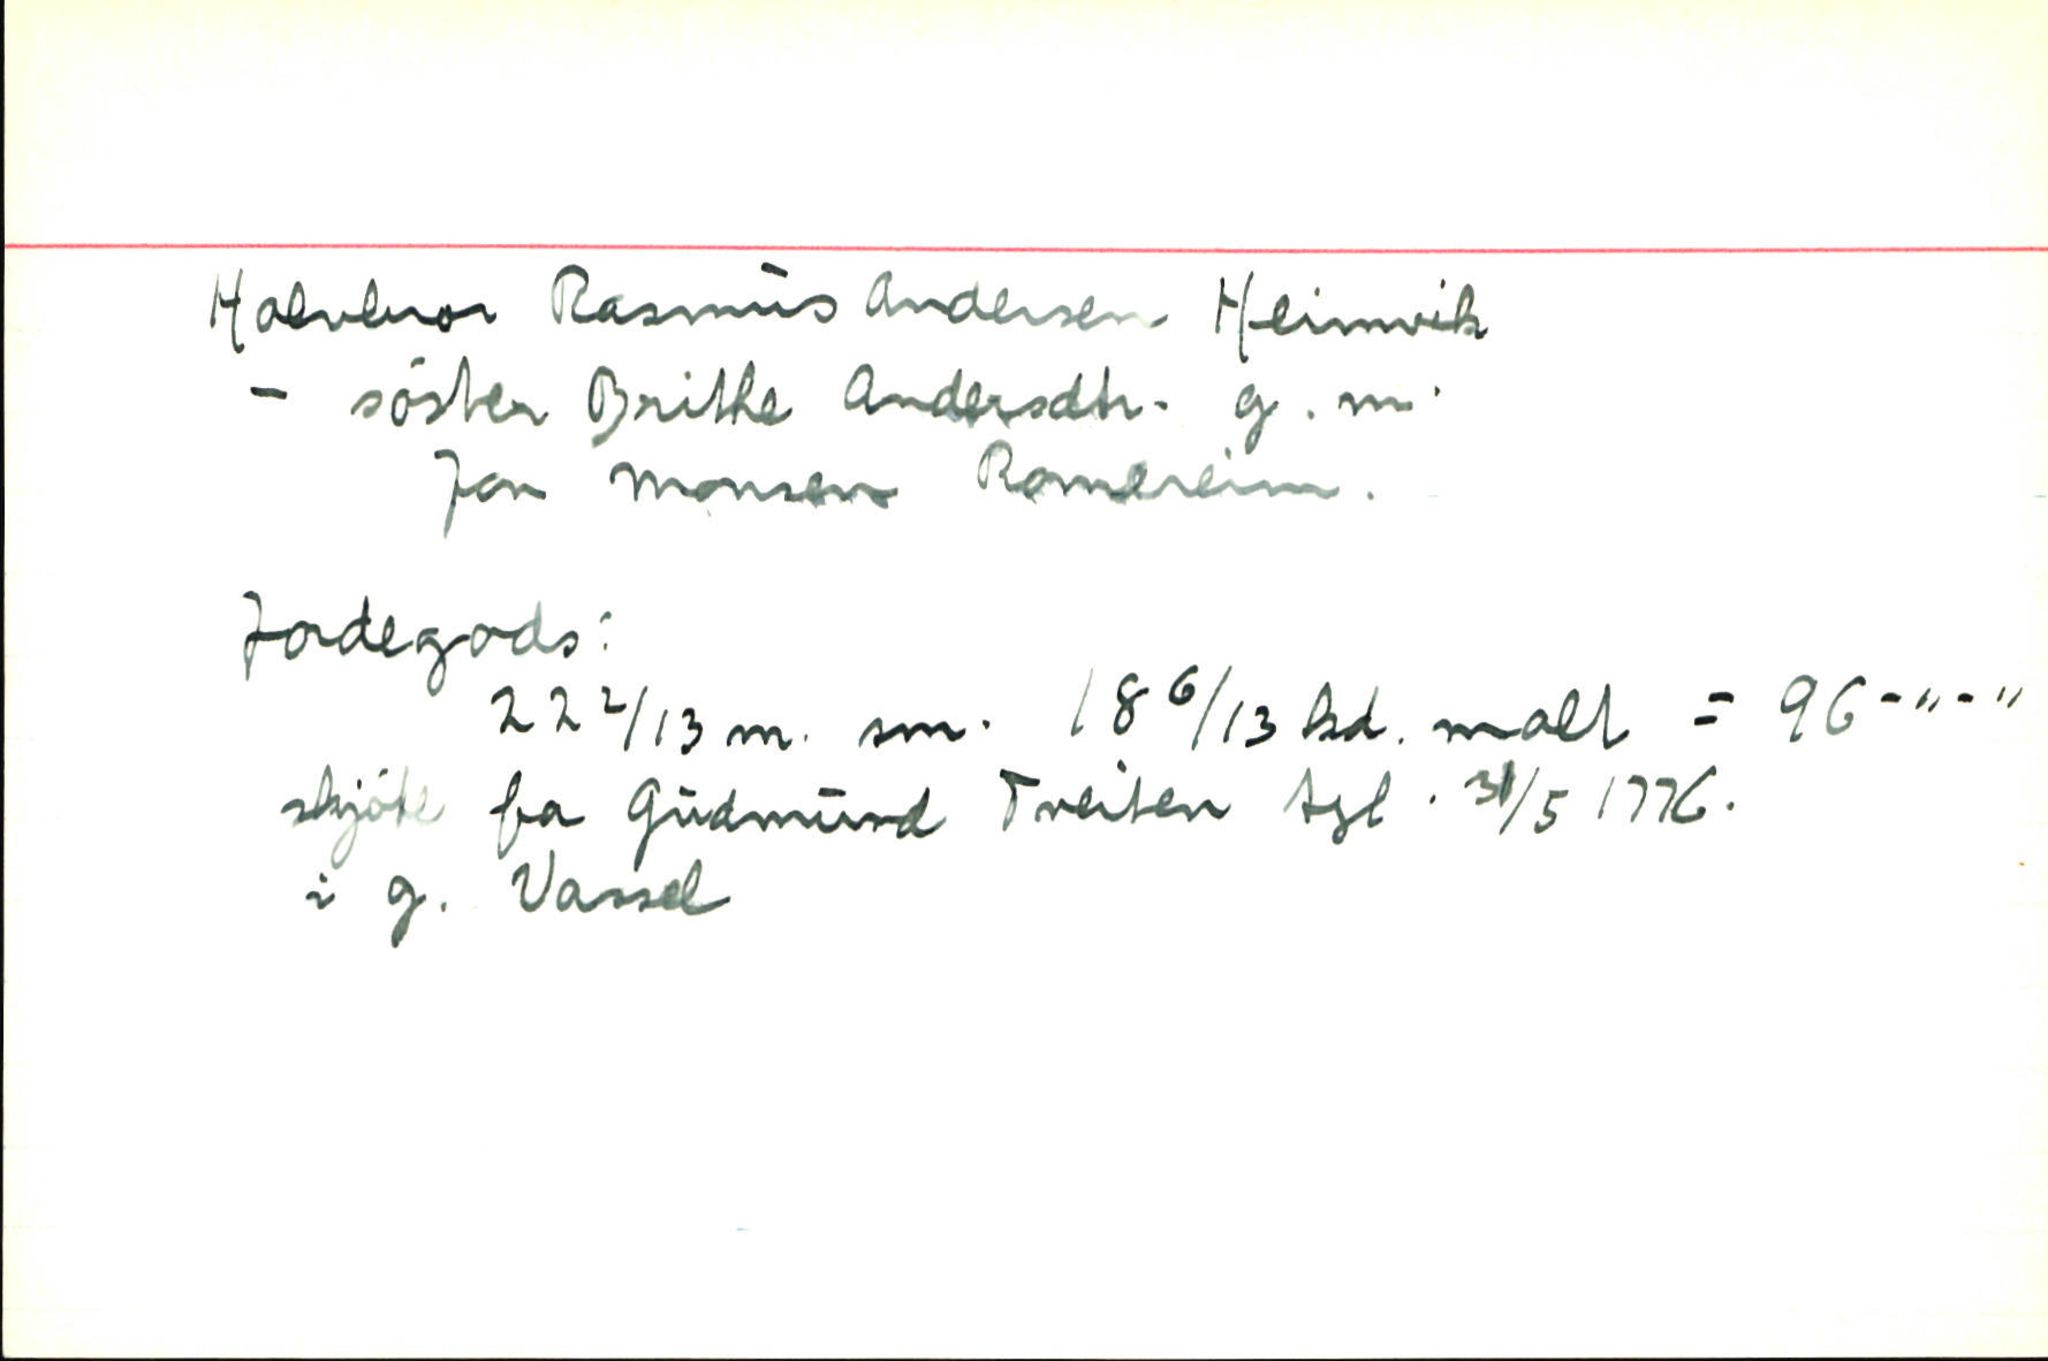 Halvbror Rasmus Andersen Heimvik
- söster Brithe Andersdtr. g. m.
Jon Monsen Romereim.
Jordegods:
22 2/13 m. sm. 18 6/13 kd. malt = 96-"-"
skjöte fra Gudmund Tveiten tgl. 31/5 1776.
i g. Vassel